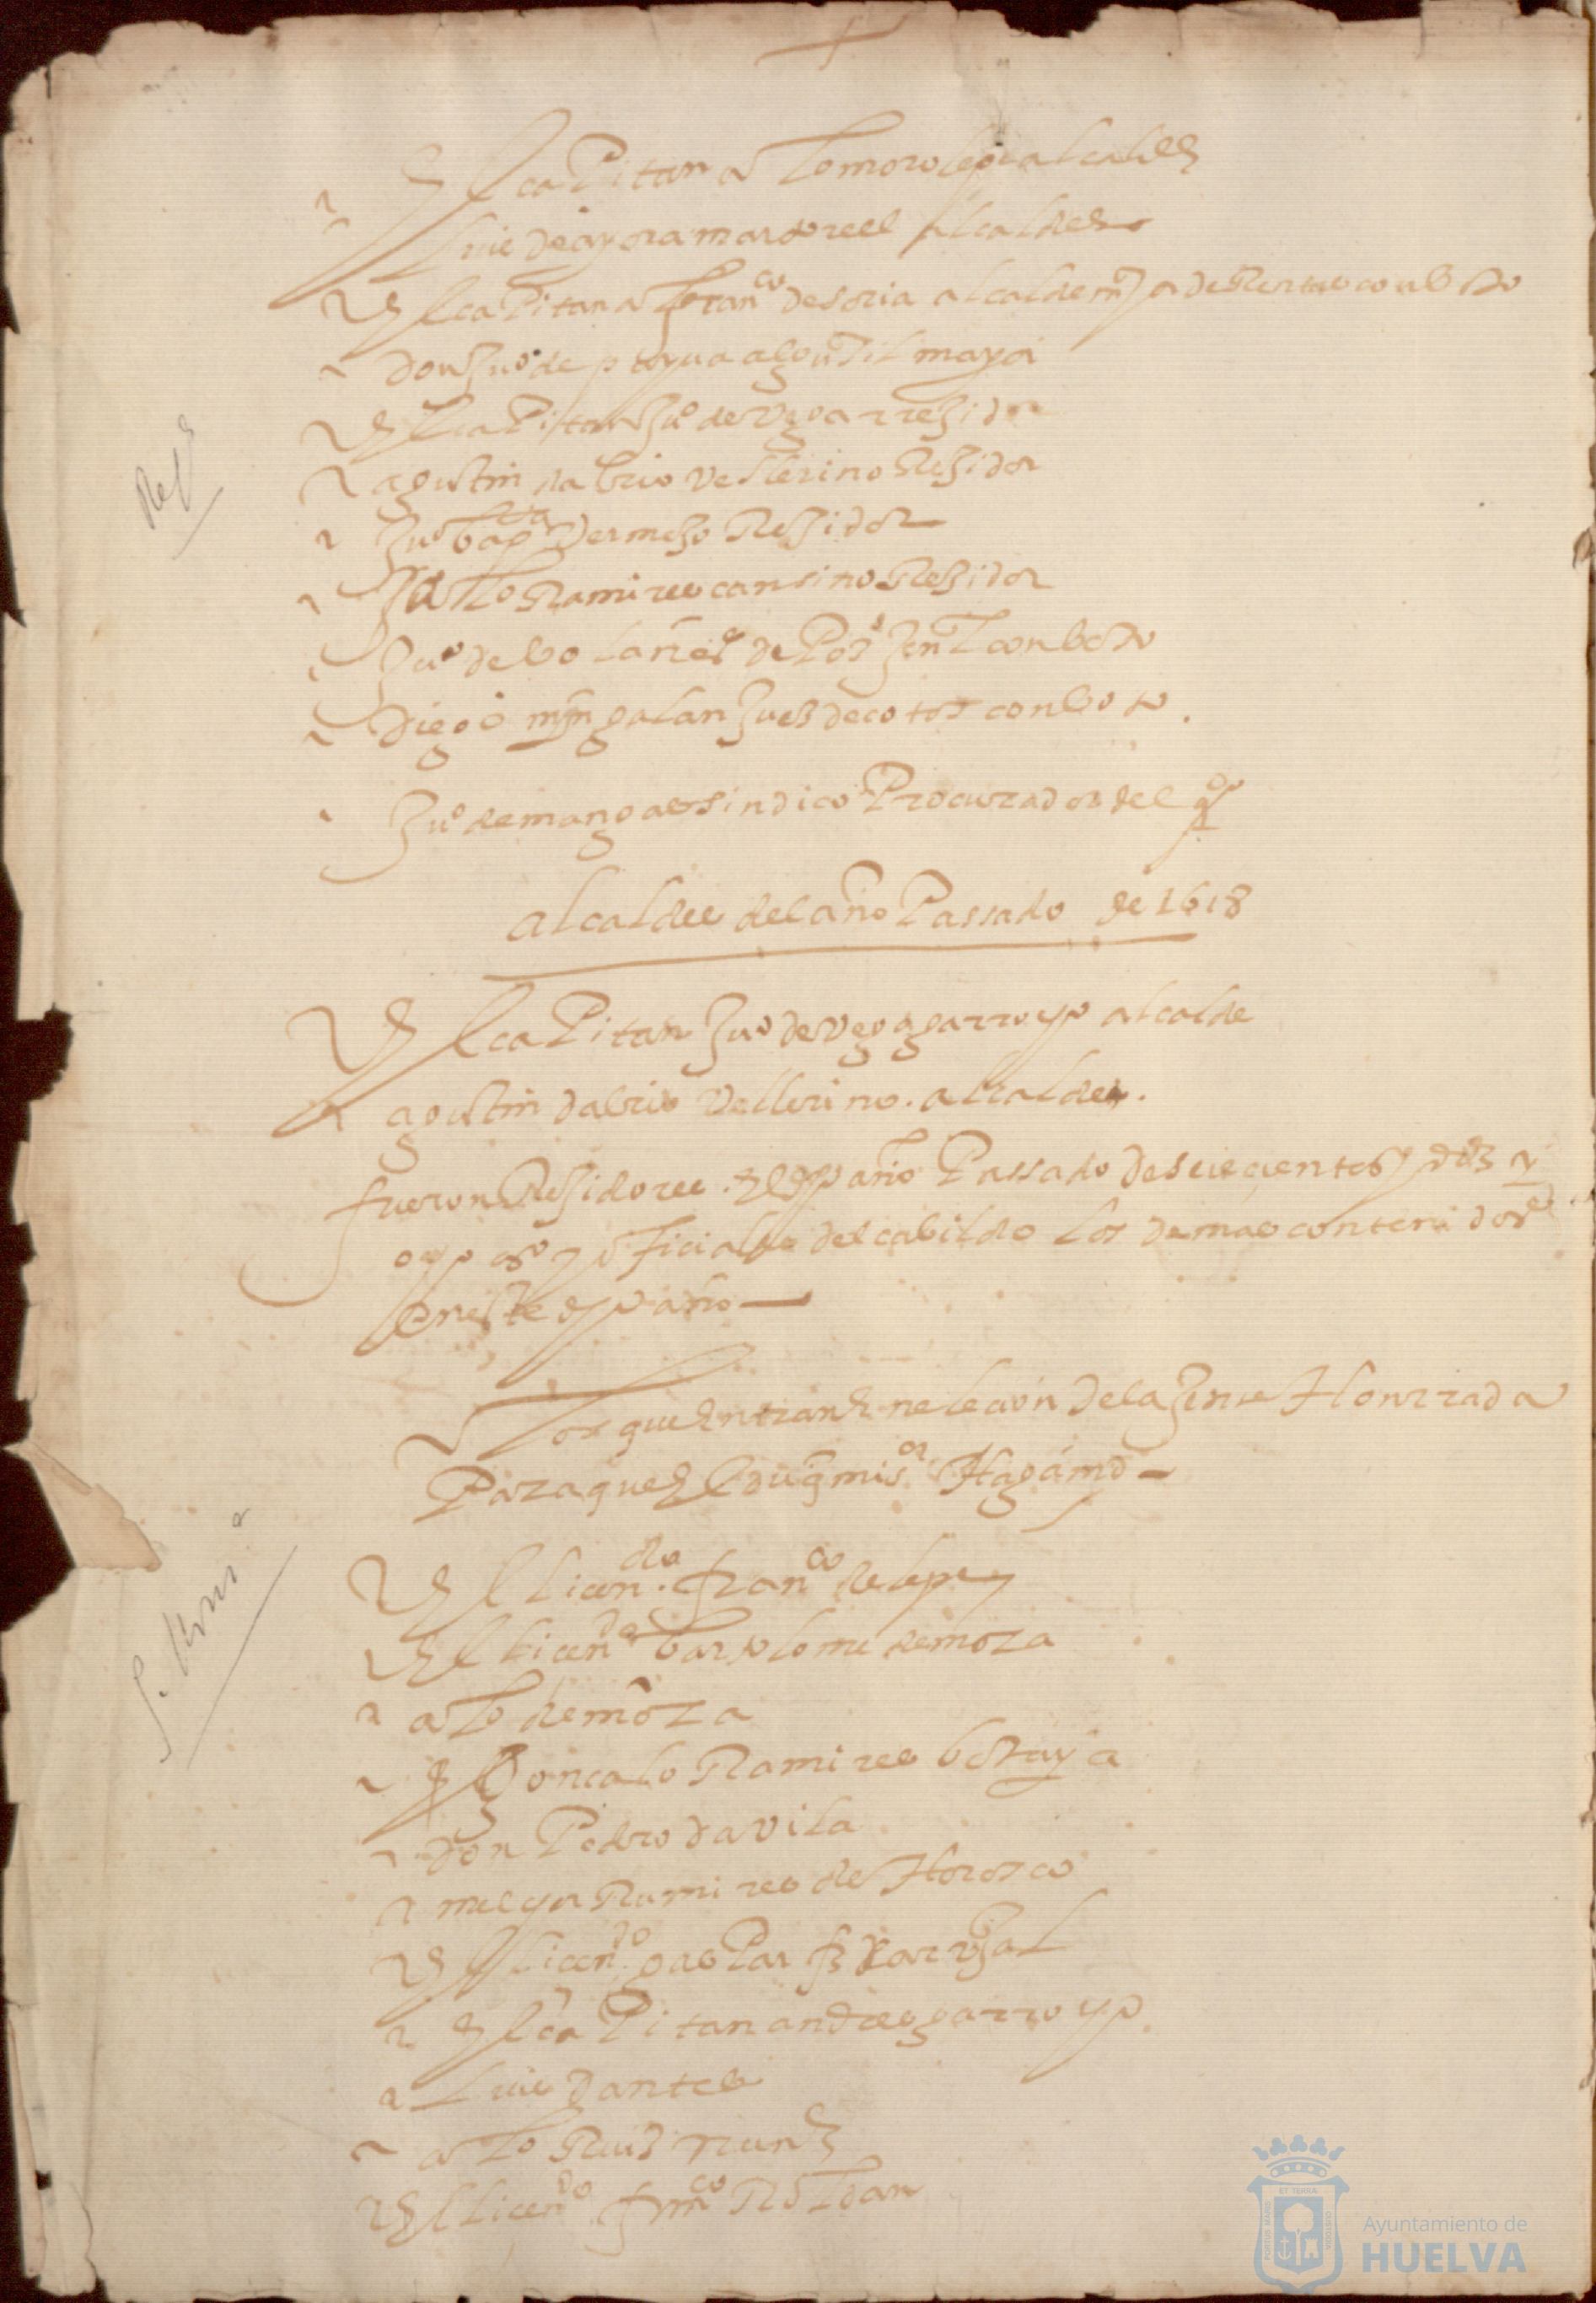 El capitan alo moro lepe alcalde
luis de ayora mardoreel alcalde
El capitan fran^co de soria alcalde m^or de Rentas con boto
don Ju^o de alguaçil mayor
El capitan Ju^o de vega rregidor
agustin dabrio Vellerino Regidor
Regs
Ju^o bap^ta Vermejo Regidor
al^o Ramires cansino Regidor
Ju^o de bolaños de pos^o gen^l con boto
Diego mrn galan Juez de cotos con boto.
Ju^o de mangas sindico Procurador del
alcaldes del año Passado de 1618
El capitan Ju^o de vega garroyo alcalde
agustin dabrio Vellerino. alcalde.
fueron Regidores el dho año Passado de seiscientos y diez y
ocho y oficiales del cabildo los demas contenidos
en este dho año
Los que Entran En elecion de la Jente Honrrada
Para que El duq mi s^or Haga md
El licen^do fran^co de lepe
El licen^do bartolome de moza
S. Mrnā
al^o de moza
goncalo Ramires botay a
don Pedro davila
melyor Ramires de Horosco
El licen^do gaspar fz carvajal
El capitan andres garroyo
Luis dantes
al^o Ruiz nunz
El licen^do fran^co Roldan
Ayuntamiento de
HUELVA